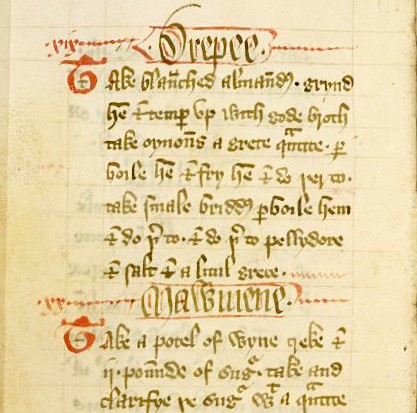 .xix. Drepee.
Take blaūched almand̄. grynd
hē ⁊ temp̄ vp with gode broth
take oynoūs a grete q̄ntite. ꝑ
boile hē ⁊ fry hē ⁊ do þer to.
take smale bridd̄ ꝑboile hem
⁊ do þ to. ⁊ do þ to pellydore
⁊ salt ⁊ a litul grece.
.xx. Mawmene.
Take a potel of wyne greke ⁊
ii. pounde of sug̾. take and
clarifye þe sug̾ wᵗ a qᵃntite